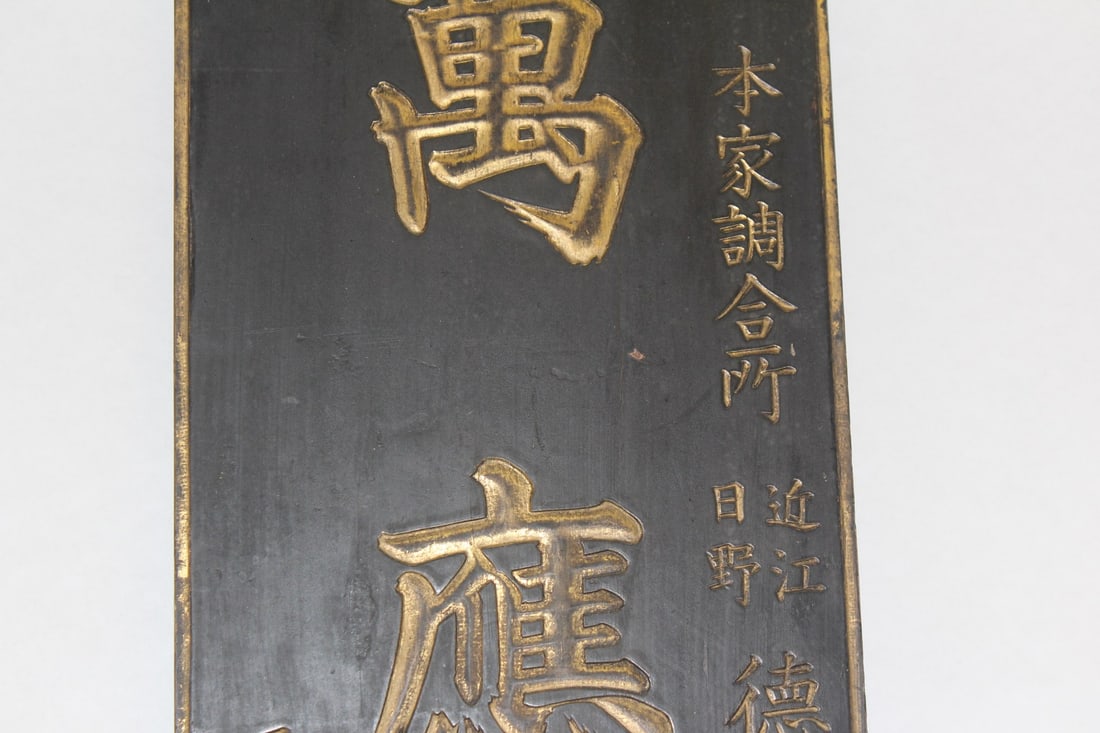 本家調合所
近江
日野
德
萬應